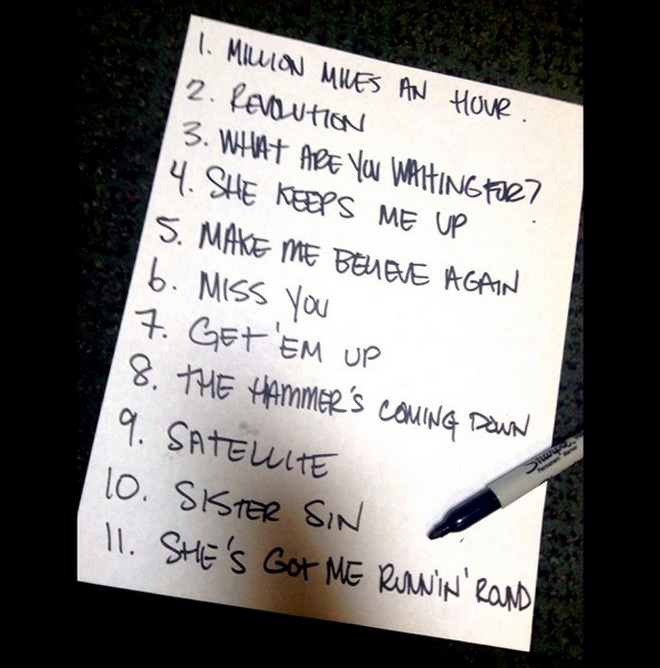 1. MILLION MILES AN HOUR.
2. REVOLUTION
3. WHAT ARE YOU WAITING FOR?
4. SHE KEEPS ME UP
5. MAKE ME BELIEVE AGAIN
6. MISS YOU
7. GET 'EM UP
8. THE HAMMER'S COMING DOWN
9. SATELLITE
10. SISTER SIN
11. SHE'S GOT ME RUNNIN' ROUND
Sharpie